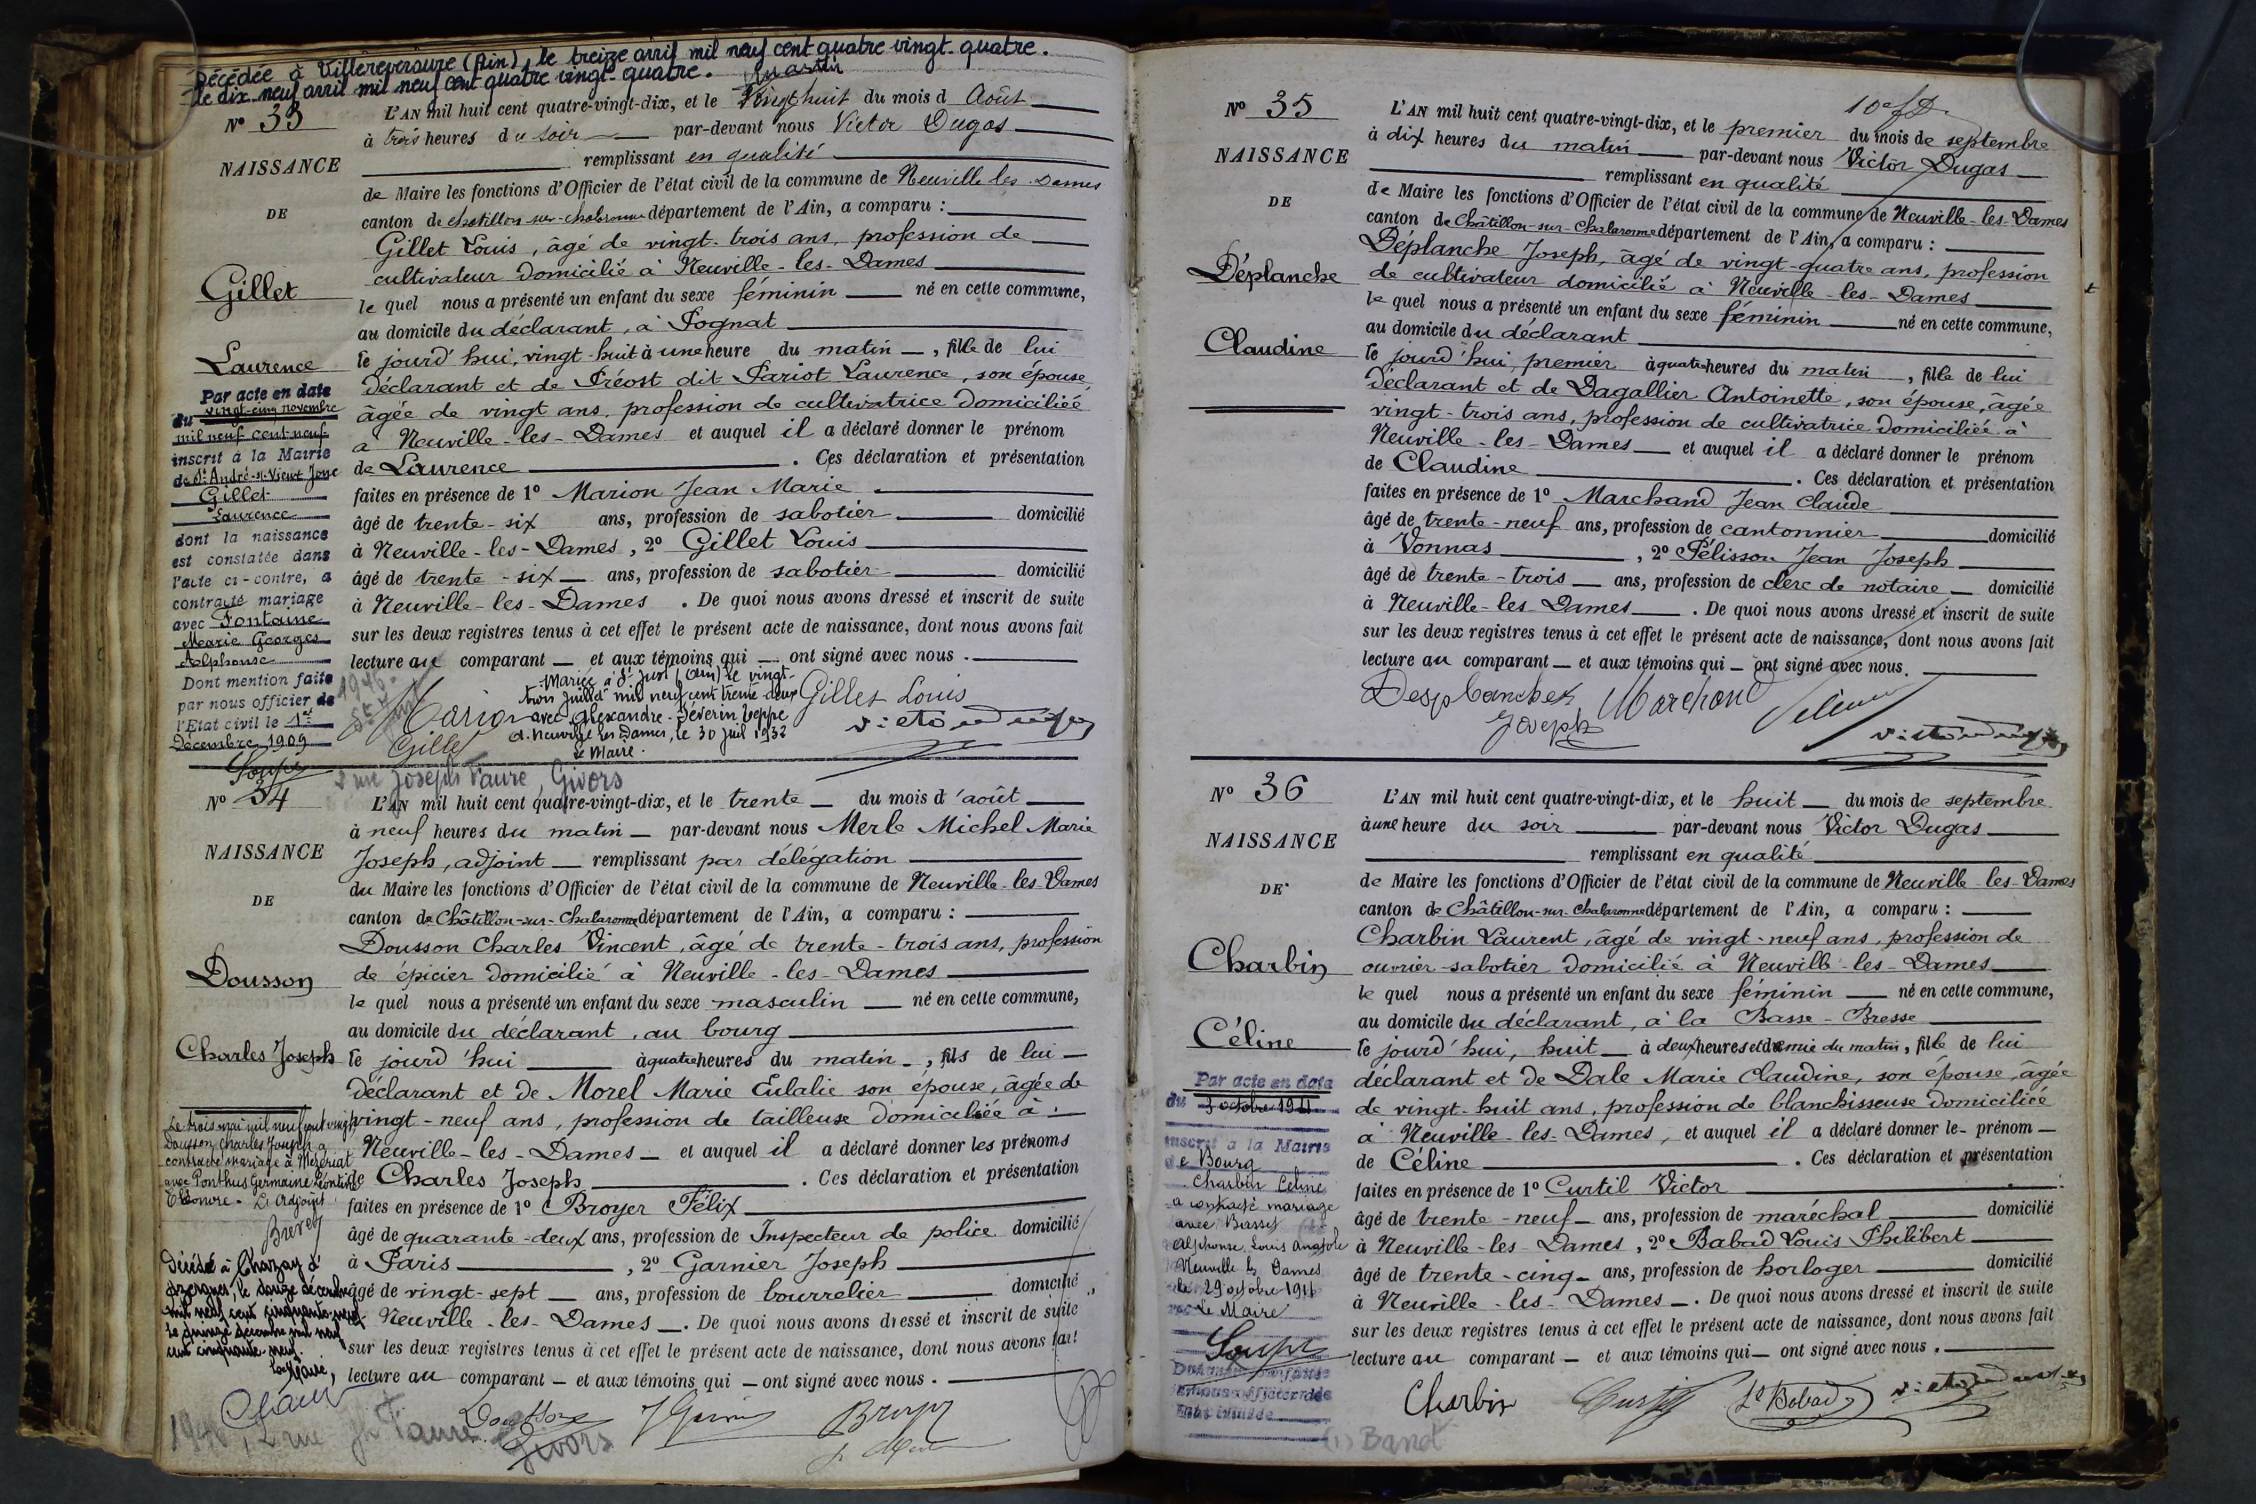 Décédée à Villereversure (Ain), le treize avril mil neuf cent quatre vingt-quatre.
le dix neuf avril mil neuf cent quatre vingt quatre.
N° 33
NAISSANCE
DE
Gillet
Laurence
Par acte en date
du vingt-cinq novembre
mil neuf cent neuf
inscrit à la Mairie
de St André-s-Vieux Jonc
Gillet
Laurence
dont la naissance
est constatée dans
l'acte ci-contre, a
contracté mariage
avec Fontaine
Marie Georges
Alphonse
Dont mention faite
par nous officier de
l'Etat civil le 1er
Décembre 1909
L'AN mil huit cent quatre-vingt-dix, et le Vingt huit du mois d Août
à trois heures du soir par-devant nous Victor Dugas
remplissant en qualité
de Maire les fonctions d'Officier de l'état civil de la commune de Neuville les Dames
canton de chatillon-sur-chalaronne département de l'Ain, a comparu :
Gillet Louis, âgé de vingt-trois ans, profession de
cultivateur domicilié à Neuville-les-Dames
le quel nous a présenté un enfant du sexe féminin né en cette commune,
au domicile du déclarant, à Pognat
le jourd'hui, vingt-huit à une heure du matin, fille de lui
déclarant et de Préost dit Pariot Laurence, son épouse,
âgée de vingt ans, profession de cultivatrice domiciliée
à Neuville-les-Dames et auquel il a déclaré donner le prénom
de Laurence . Ces déclaration et présentation
faites en présence de 1° Marion Jean Marie
âgé de trente-six ans, profession de sabotier domicilié
à Neuville-les-Dames, 2° Gillet Louis
âgé de trente-six ans, profession de sabotier domicilié
à Neuville-les-Dames . De quoi nous avons dressé et inscrit de suite
sur les deux registres tenus à cet effet le présent acte de naissance, dont nous avons fait
lecture au comparant et aux témoins qui ont signé avec nous .
Mariée à St Just (Ain) le vingt-
trois Juillet mil neuf cent trente deux
avec Alexandre Séverin Veppe
A Neuville les Dames, le 30 Juil 1932
Le Maire.
1946
Marion
Gillet Louis
Gillet
Victor Dugas
2 rue Joseph Faure, Givors
N° 34
NAISSANCE
DE
Dousson
Charles Joseph
Le trois mai mil neuf cent vingt
Dousson Charles Joseph a
contracté mariage à Mézériat
avec Ponthus Germaine Léontine
Eléonore. L'Adjoint
Décédé à Chazay d'
Azergues, le douze décembre
mil neuf cent cinquante-neuf
Le quinze décembre mil neuf
cent cinquante-neuf.
Le Maire,
L'AN mil huit cent quatre-vingt-dix, et le trente du mois d'août
à neuf heures du matin par-devant nous Merle Michel Marie
Joseph, adjoint remplissant par délégation
du Maire les fonctions d'Officier de l'état civil de la commune de Neuville-les-Dames
canton de Châtillon-sur-Chalaronne département de l'Ain, a comparu :
Dousson Charles Vincent, âgé de trente-trois ans, profession
de épicier domicilié à Neuville-les-Dames
le quel nous a présenté un enfant du sexe masculin né en cette commune,
au domicile du déclarant, au bourg
le jourd'hui à quatre heures du matin, fils de lui
déclarant et de Morel Marie Eulalie son épouse, âgée de
vingt-neuf ans, profession de tailleuse domiciliée à
Neuville-les-Dames et auquel il a déclaré donner les prénoms
de Charles Joseph . Ces déclaration et présentation
faites en présence de 1° Broyer Félix
âgé de quarante-deux ans, profession de Inspecteur de police domicilié
à Paris , 2° Garnier Joseph
âgé de vingt-sept ans, profession de bourrelier domicilié
à Neuville-les-Dames . De quoi nous avons dressé et inscrit de suite
sur les deux registres tenus à cet effet le présent acte de naissance, dont nous avons fait
lecture au comparant et aux témoins qui ont signé avec nous .
Dousson
Broyer
1946, 2 rue Jh Faure
Givors
N° 35
NAISSANCE
DE
Déplanche
Claudine
L'AN mil huit cent quatre-vingt-dix, et le premier du mois de septembre
à dix heures du matin par-devant nous Victor Dugas
remplissant en qualité
de Maire les fonctions d'Officier de l'état civil de la commune de Neuville-les-Dames
canton de Châtillon-sur-Chalaronne département de l'Ain, a comparu :
Déplanche Joseph, âgé de vingt-quatre ans, profession
de cultivateur domicilié à Neuville-les-Dames
le quel nous a présenté un enfant du sexe féminin né en cette commune,
au domicile du déclarant
le jourd'hui, premier à quatre heures du matin, fille de lui
déclarant et de Dagallier Antoinette, son épouse, âgée
vingt-trois ans, profession de cultivatrice domiciliée à
Neuville-les-Dames et auquel il a déclaré donner le prénom
de Claudine . Ces déclaration et présentation
faites en présence de 1° Marchand Jean Claude
âgé de trente-neuf ans, profession de cantonnier domicilié
à Vonnas , 2° Pélisson Jean Joseph
âgé de trente-trois ans, profession de clerc de notaire domicilié
à Neuville-les-Dames . De quoi nous avons dressé et inscrit de suite
sur les deux registres tenus à cet effet le présent acte de naissance, dont nous avons fait
lecture au comparant et aux témoins qui ont signé avec nous.
Desplanches Marchand
Joseph
Victor Dugas
N° 36
NAISSANCE
DE
Charbin
Céline
Par acte en date
du 3 octobre 1911
inscrit à la Mairie
de Bourg
Charbin Céline
a contracté mariage
avec
Alphonse Louis Anatole
Neuville les Dames
le 29 octobre 1911
Le Maire
L'AN mil huit cent quatre-vingt-dix, et le huit du mois de septembre
à une heure du soir par-devant nous Victor Dugas
remplissant en qualité
de Maire les fonctions d'Officier de l'état civil de la commune de Neuville-les-Dames
canton de Châtillon-sur-Chalaronne département de l'Ain, a comparu :
Charbin Laurent, âgé de vingt-neuf ans, profession de
ouvrier-sabotier domicilié à Neuville-les-Dames
le quel nous a présenté un enfant du sexe féminin né en cette commune,
au domicile du déclarant, à la Basse-Bresse
le jourd'hui, huit à deux heures et demie du matin, fille de lui
déclarant et de Dale Marie Claudine, son épouse, âgée
de vingt-huit ans, profession de blanchisseuse domiciliée
à Neuville-les-Dames, et auquel il a déclaré donner le prénom
de Céline . Ces déclaration et présentation
faites en présence de 1° Curtil Victor
âgé de trente-neuf ans, profession de maréchal domicilié
à Neuville-les-Dames, 2° Babad Louis Philibert
âgé de trente-cinq ans, profession de horloger domicilié
à Neuville-les-Dames . De quoi nous avons dressé et inscrit de suite
sur les deux registres tenus à cet effet le présent acte de naissance, dont nous avons fait
lecture au comparant et aux témoins qui ont signé avec nous .
Charbin Curtil Ls Babad Victor Dugas